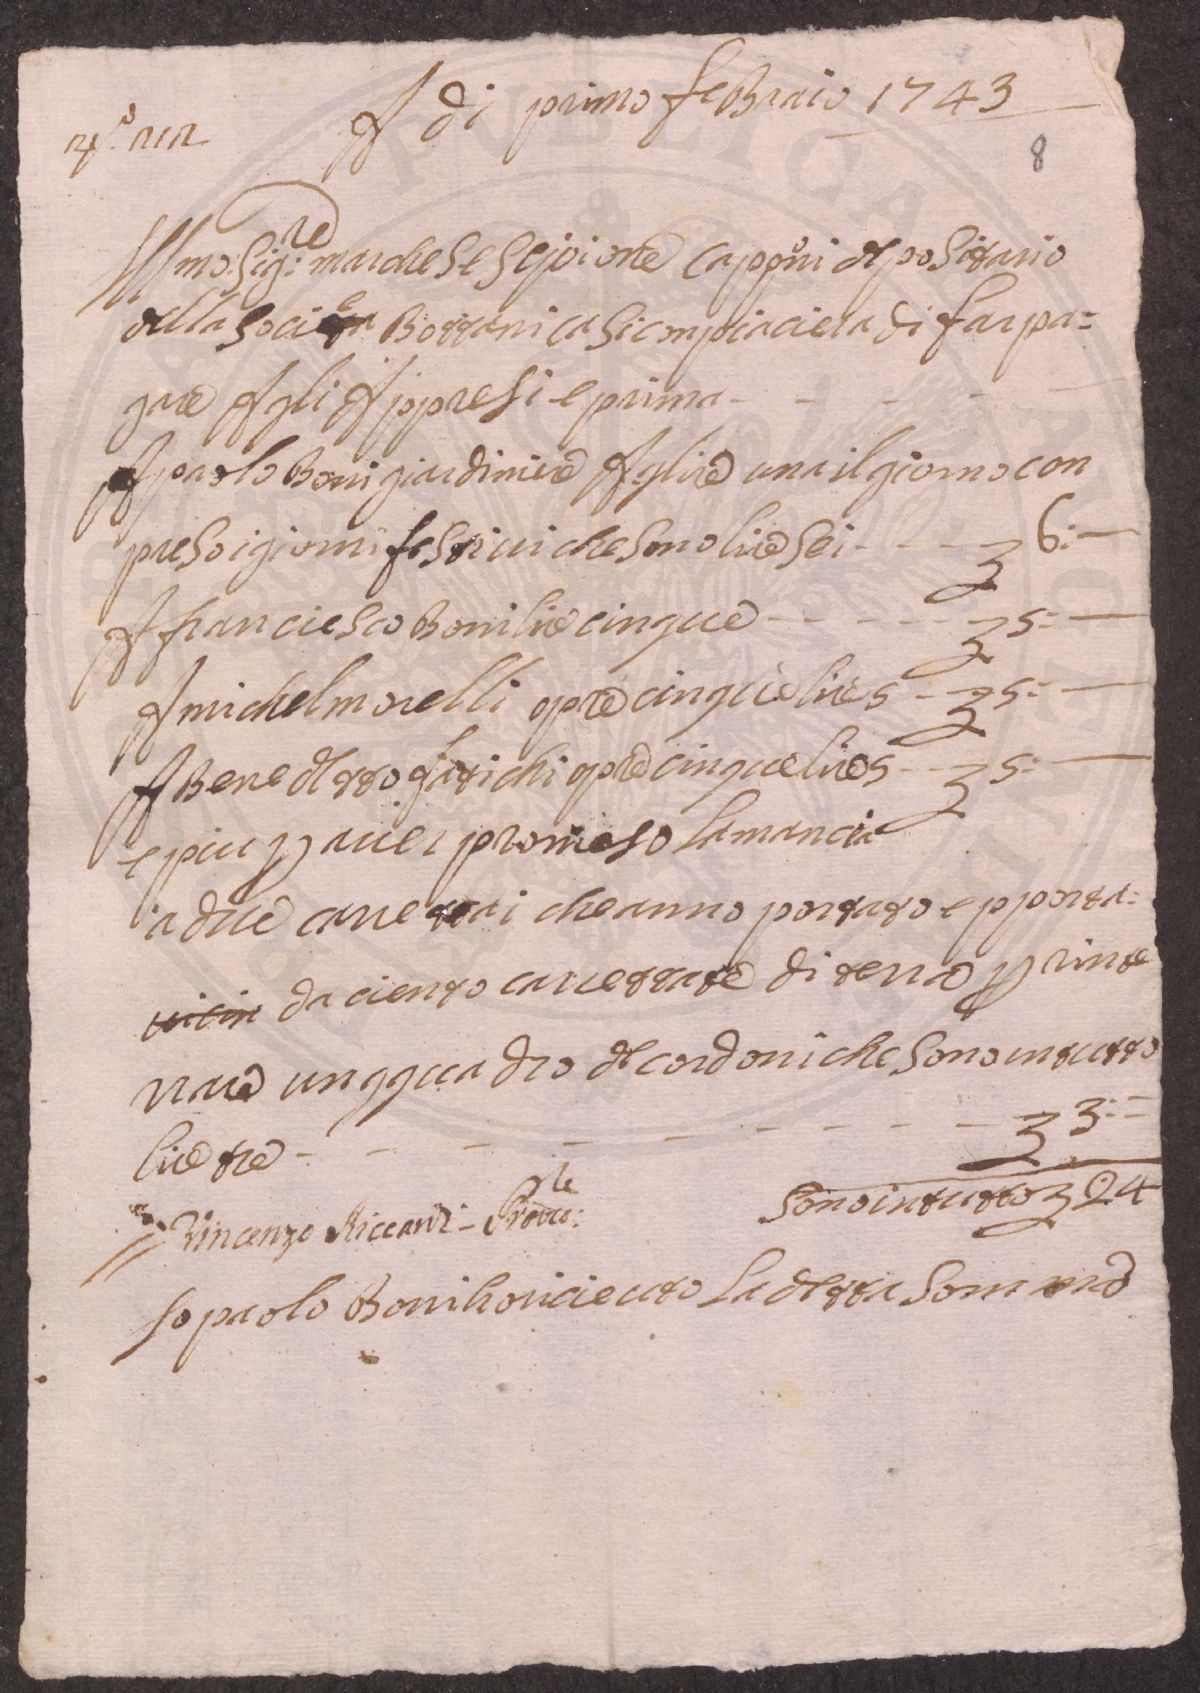 A di primo feBraio 1743
8
Illmo: Sigre: marchese Scipione Capponi depositario
della Società Bottanica si conpiaciera di far pa=
gare Agli Appresi e prima - - - -
A paolo Boni giardiniere A lire una il giorno con
preso i giorni festiui che sono lire sei - - - 6:—
A franciesco Boni lire cinque - - - - - 5:—
A michel morelli opre cinque lire 5 - 5:—
A Benedetto fatichi opre cinque lire 5 - 5:—
e piu p auer promeso la mancia
a due carettai che anno portato e pporta=
da ciento carrettate di terra p rinte
rrare un qquadro de cordoni che sono in tutto
lire tre - - - - - - - - - 3:=
Sono in tutto 24
Vincenzo Riccardi - Proueː
Io paolo Boni ho riceuto la detta somma